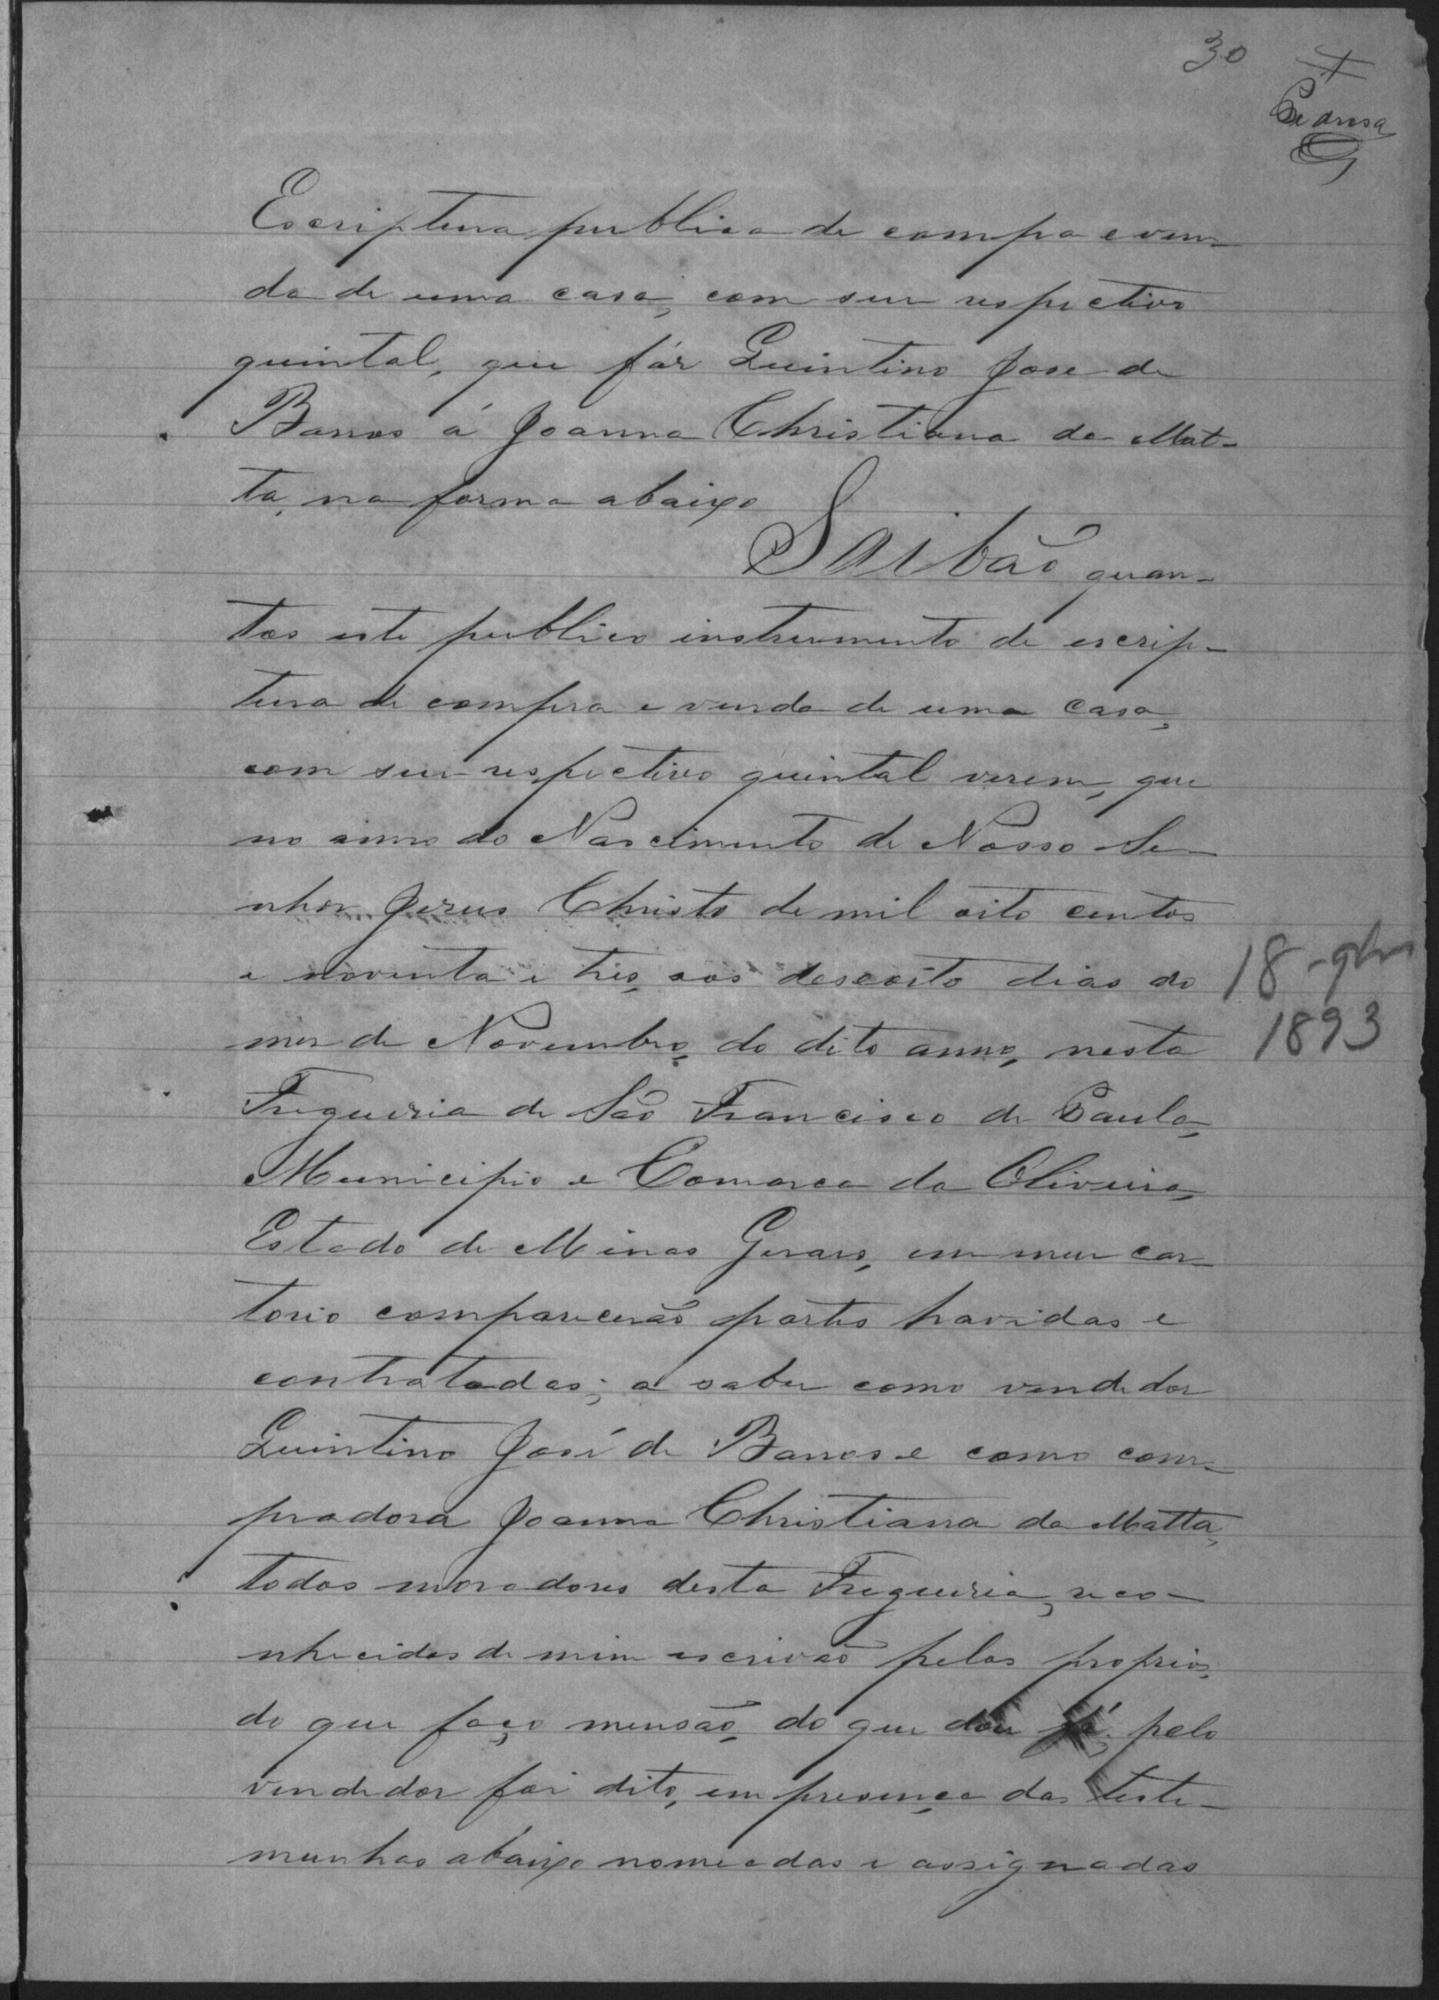 30
Escriptura publica de compra e ven-
da de uma casa, com seu respectivo
quintal, que fás Quintino José de
Barros á Joanna Christiana da Mat-
ta, na forma abaixo
Saibão quan-
tos este publico instrumento de escrip-
tura de compra e venda de uma casa,
com seu respectivo quintal virem, que
no anno do Nascimento de Nosso Se-
nhor Jesus Christo de mil oito centos
e noventa e tres, aos desoito dias do
mes de Novembro, do dito anno, nesta
Freguesia de São Francisco de Paula,
Municipio e Comarca da Oliveira,
Estado de Minas Geraes, em meu car-
torio comparecerão partes havidas e
contratadas; a saber como vendedor
Quintino José de Barros e como com-
pradora Joanna Christiana da Matta,
todos moradores desta Freguesia, reco-
nhecidos de mim escrivão pelos proprios,
do que faço mensão, do que dou fé; pelo
vendedor foi dito, em presença das teste-
munhas abaixo nomeadas e assignadas
18-9br
1893